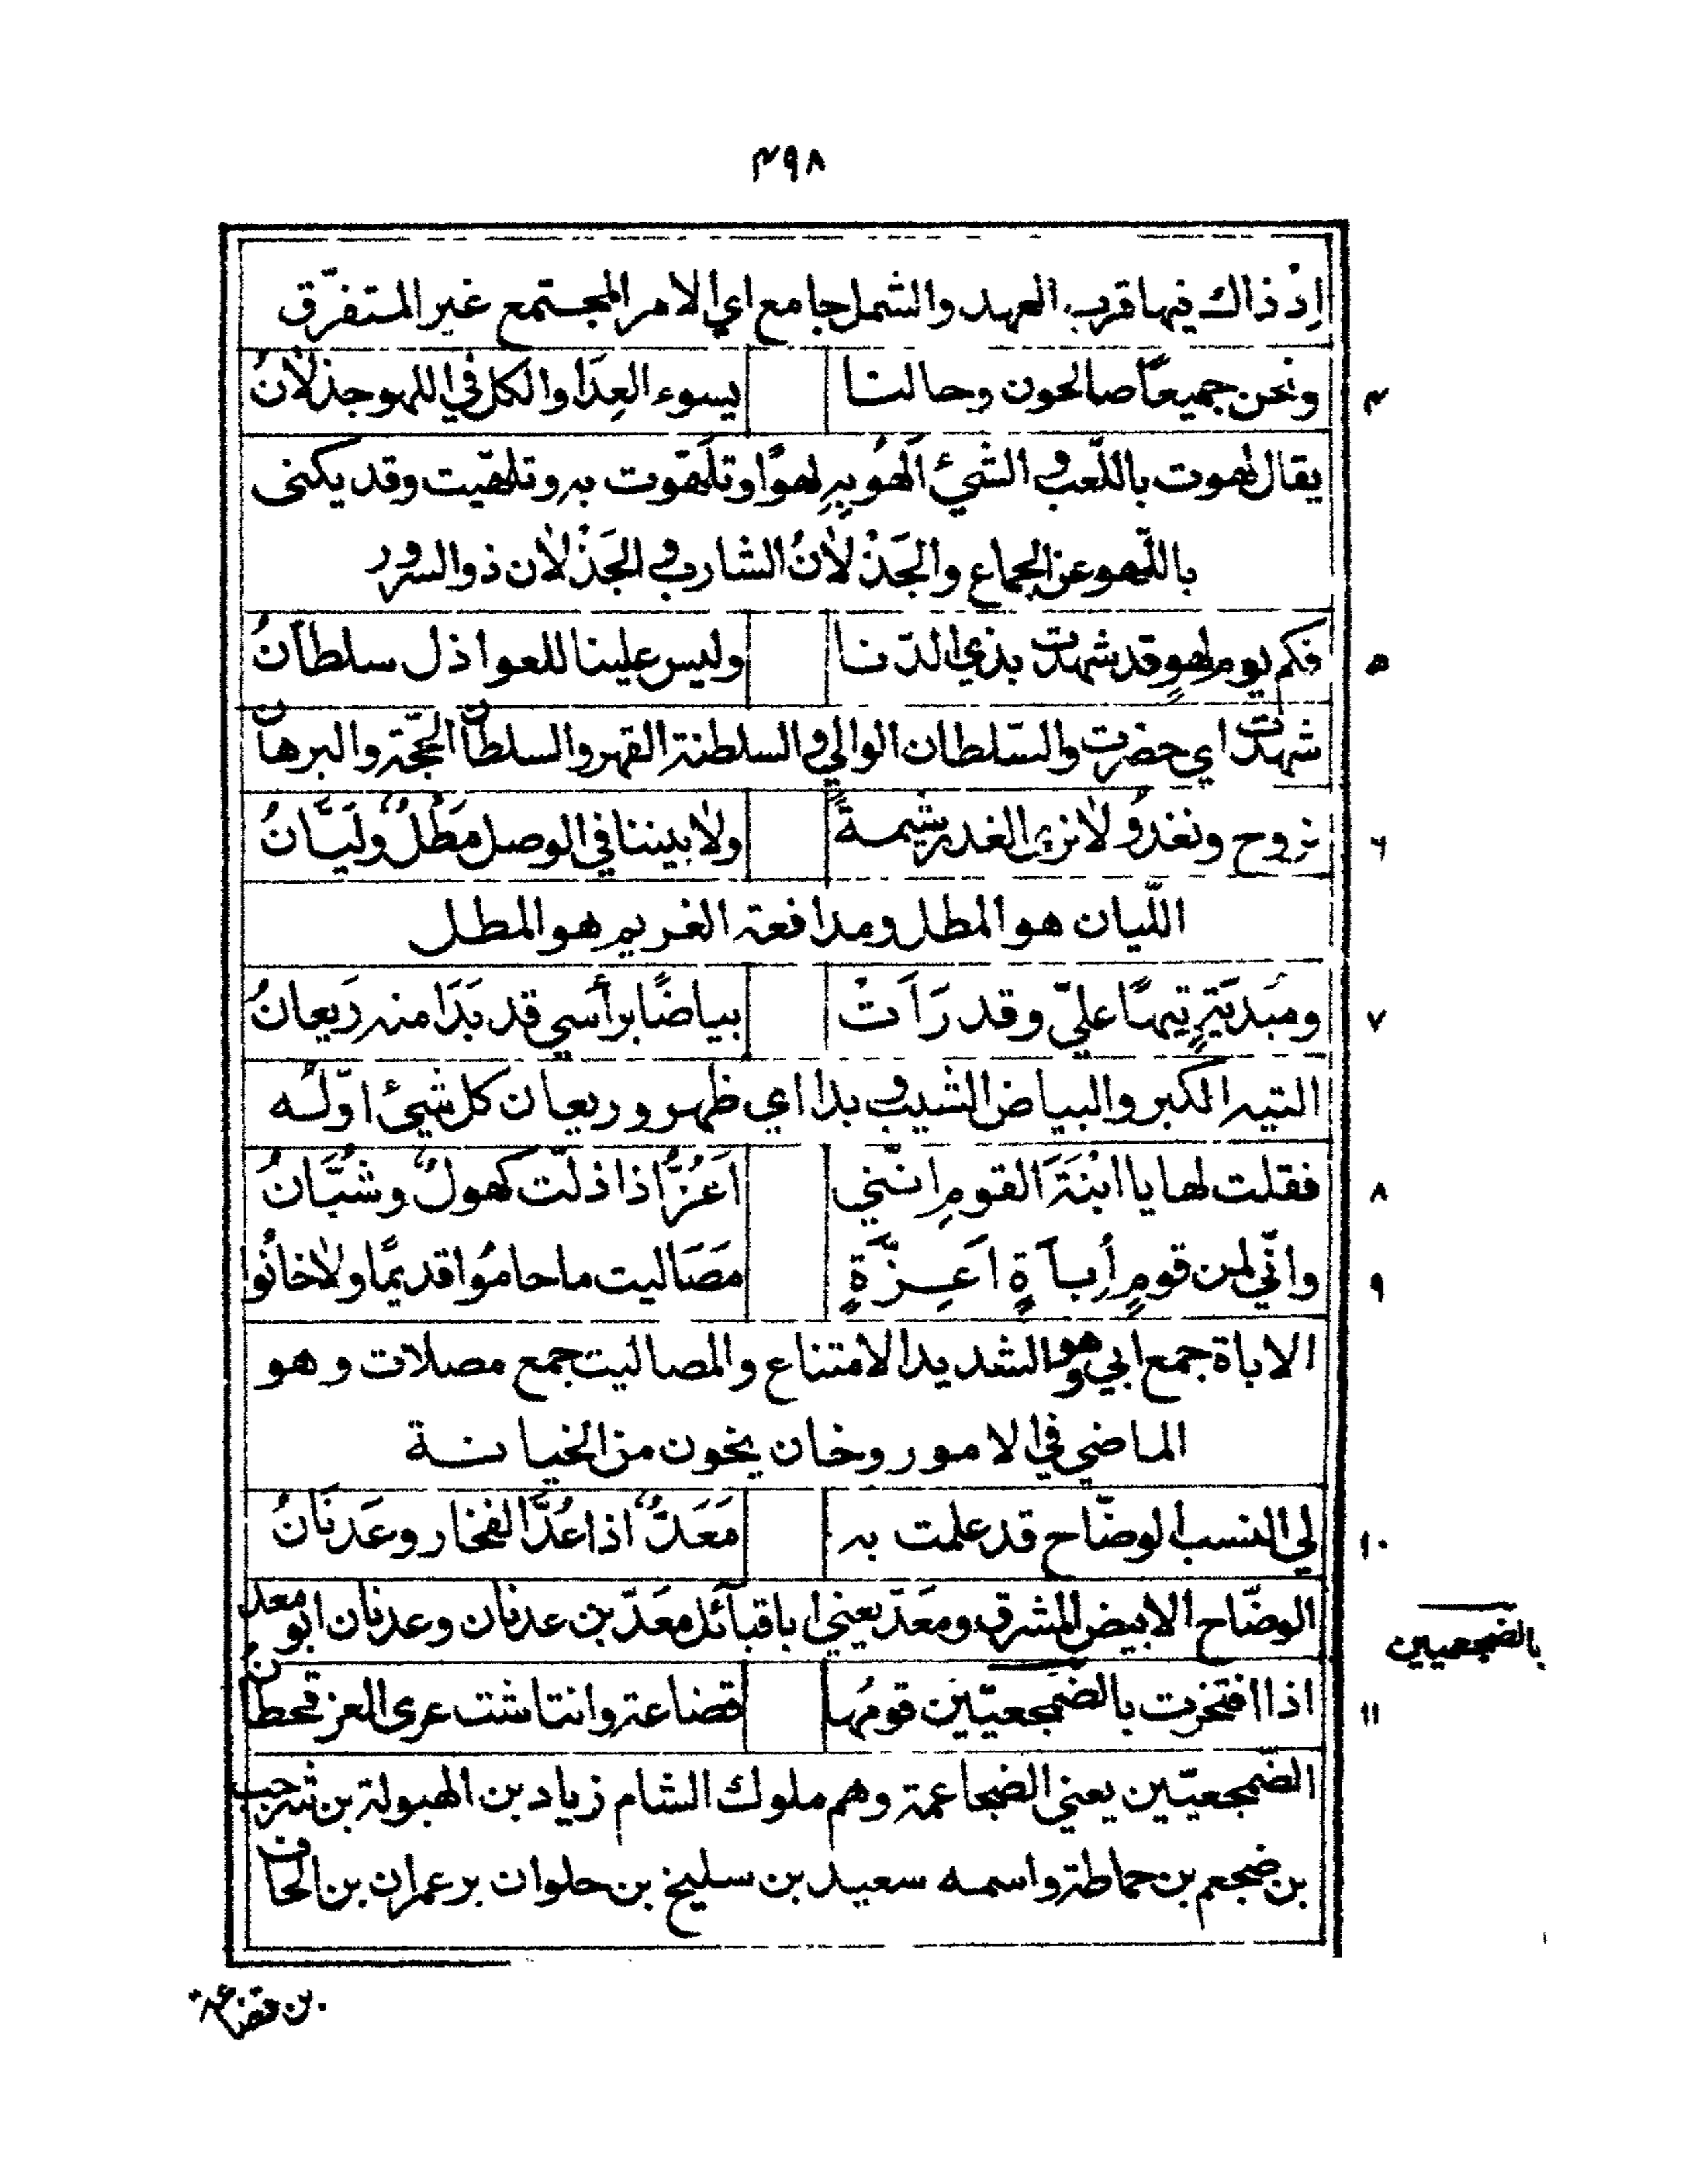 ٤٩٨
اِذْ ذاك فيها قرب العهد والشمل جامع اي الامر المجتمع غير المتفرّق
٤ ونحن جميعًا صالحون وحالنا يسوء العِدَا والكل في اللهو جذلانُ
يقال لهوت باللّعب و الشيئ اَلهُو بِهِ لهوًا وتَلَهّوت به وتلهّيت وقد يكنى
باللّهو عن الجماع والجَذْلانُ الشارب و الجَذْلان ذو السرور
٥ فكم يوم لهوٍ قد شهدت بذي الدّنا وليس علينا للعواذل سلطانُ
شهدت اي حضرت والسّلطان الوالي و السلطنة القهر والسلطان الحجّة والبرهان
٦ نروح ونغدو لا نرى الغدر شيمةً ولا بيننا في الوصل مَطْلٌ ولَيَّانُ
اللّيان هو المطل ومدافعة الغريم هو المطل
٧ ومبديَةٍ تيهًا عليّ وقد رَاَتْ بياضًا برأسي قد بَدَا منه رَيعانُ
التيه الكبر والبياض الشيب و بدا اي ظهر وريعان كل شيئ اوّله
٨ فقلت لها يا ابْنَةَ القومِ انّني اَعُزُّ اذا ذلّت كهولٌ وشُبَّانُ
٩ وانّي لمن قومٍ أُباَةٍ اَعِزَّةٍ مَصَاليت ما حامُوا قديمًا ولا خانُوا
الاباة جمع ابي وهو الشديد الامتناع والمصاليت جمع مصلات وهو
الماضي في الامور وخان يخون من الخيانة
١٠ لي النسب الوضّاح قد علمت به مَعَدٌّ اذا عُدَّ الفخار وعَدنَانُ
الوضّاح الابيض المشرق ومَعَدّ يعني ابا قبآئل مَعَدّ بن عدنان وعدنان ابو معد
بالضجعميين
١١ اذا افتخرت بالضّجعميّين قومُها قضاعة وانتاشت عرى العز قحطانُ
الضّجعميّين يعني الضجاعمة وهم ملوك الشام زياد بن الهبولة بن
بن ضجعم بن حماطة واسمه سعيد بن سليخ بن حلوان بن عمران بن الحاف
بن قضاعة